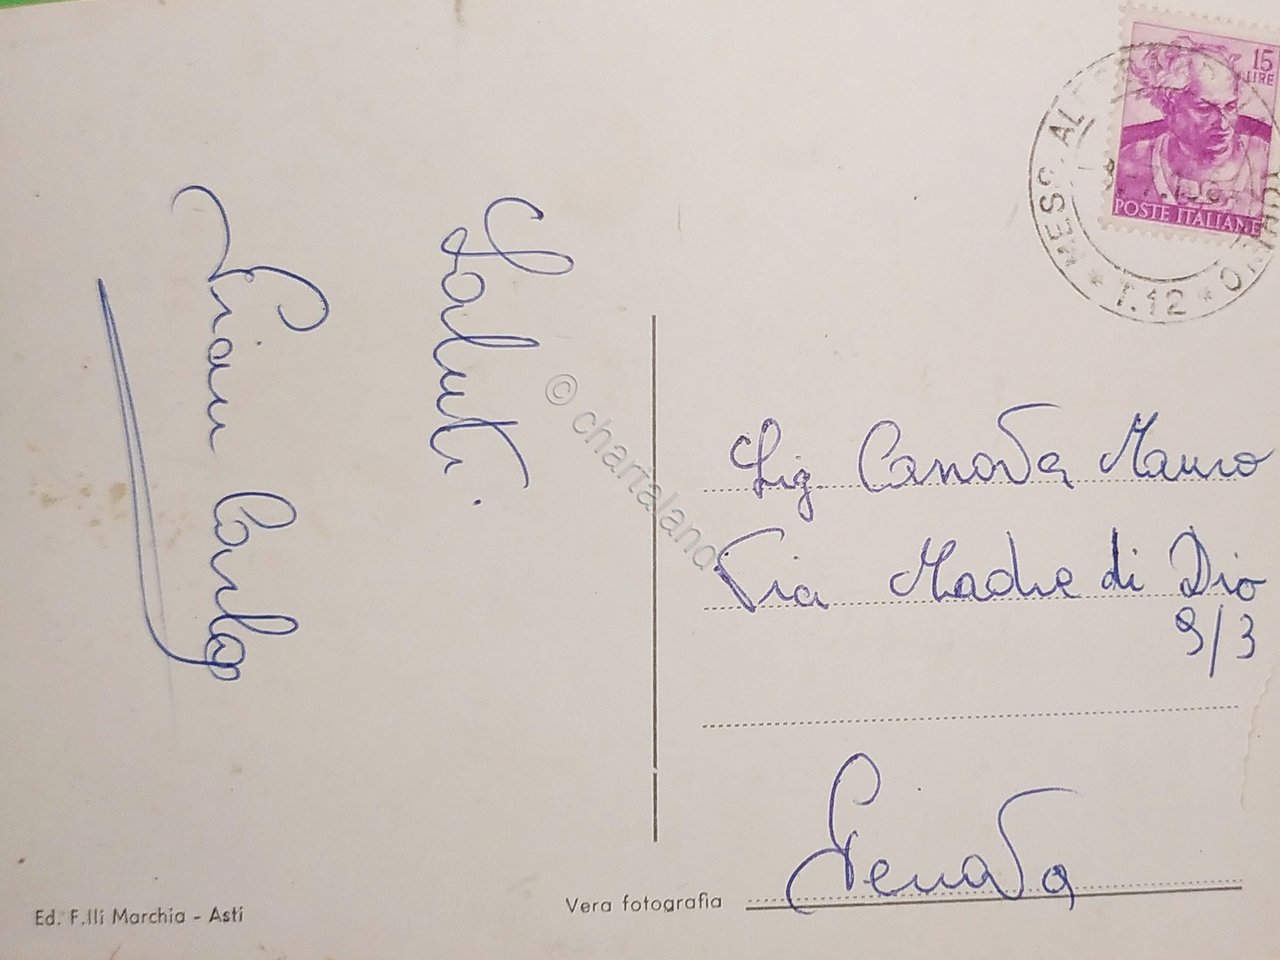 Saluti.
Gian Carlo
15
LIRE
POSTE ITALIANE
T.12
Sig. Canova Mauro
Via Madre di Dio
9/3
Genova
Ed. F.lli Marchia - Asti
Vera fotografia
© chartaland